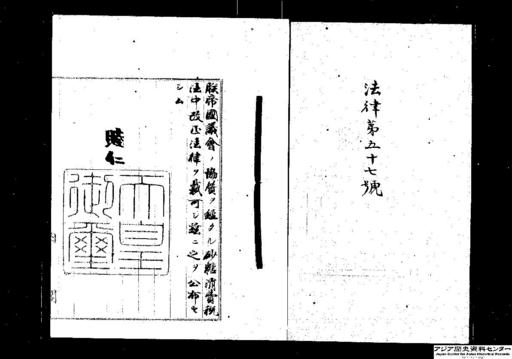 法律第五十七號
朕帝國議會ノ協贊ヲ經タル砂糖消費稅
法中改正法律ヲ裁可シ茲ニ之ヲ公布セ
シム
睦仁
天皇
御璽
內閣
アジア歴史資料センター
Japan Center for Asian Historical Records